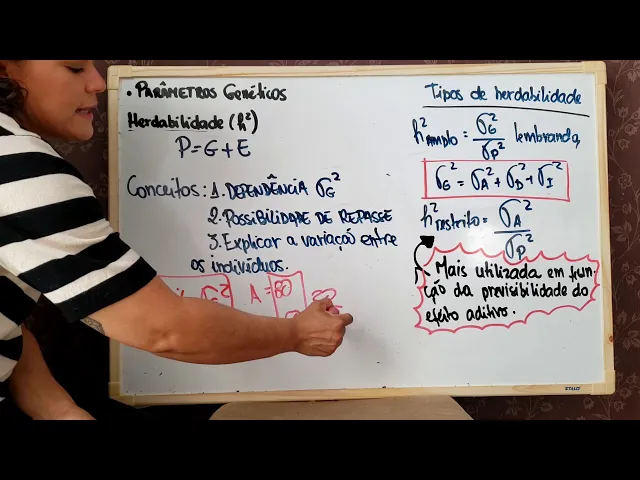 • PARÂMETROS GENÉTICOS
HERDABILIDADE (h²)
P=G+E
CONCEITOS: 1. DEPENDÊNCIA σ²G
2. POSSIBILIDADE DE REPASSE
3. Explicar a variação entre
os indivíduos.
A = 80
Tipos de herdabilidade
h² AMPLO = σG² / σP² lembrando,
σG² = σA² + σD² + σI²
h² RESTRITO = σA² / σP²
Mais utilizada em fun-
ção da previsibilidade do
efeito aditivo.
STALO